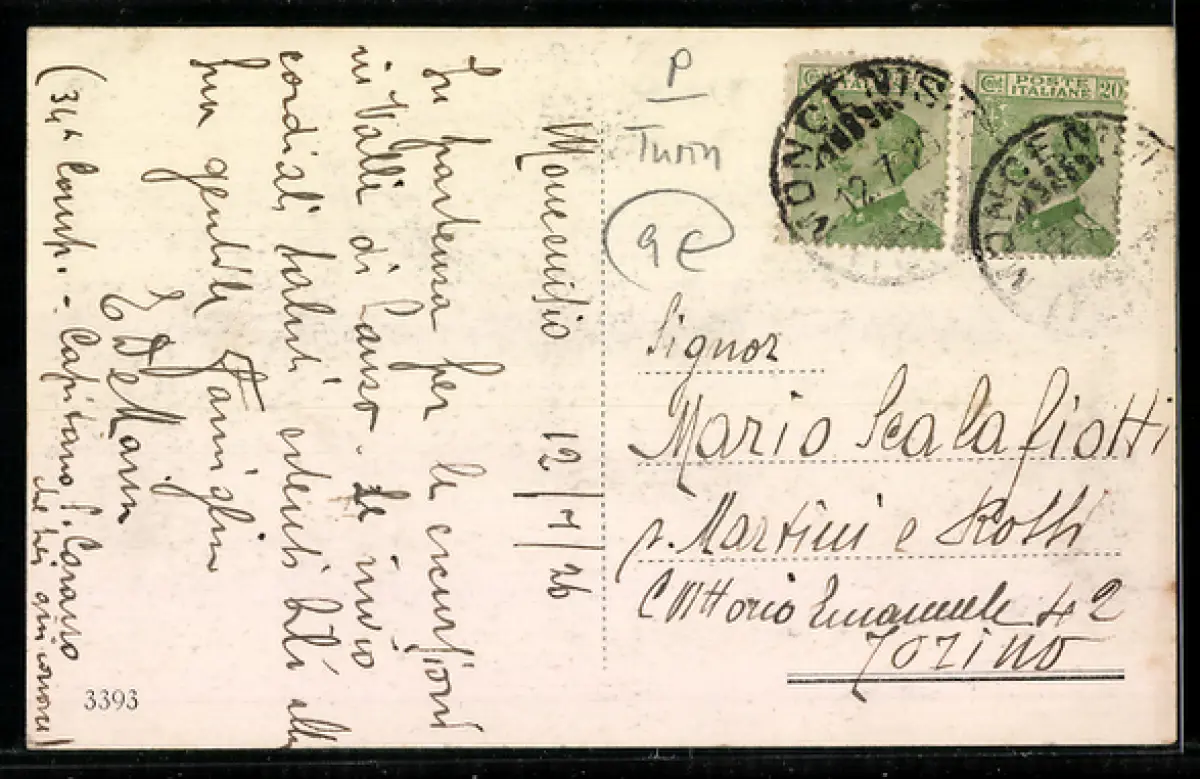 Moncenisio 12/7/26
In partenza per le escursioni
in Valli di Lanzo. Le invio
cordiali saluti estensibili alla
Sua gentile Famiglia
E De Maria
(34ª Comp. - Capitano
P
Turin
9E
MONCENIS
12.7.26
Cmi POSTE ITALIANE 20
MONCENIS
Signor
Mario Scalafiotti
p. Martini e Rossi
C Vittorio Emanuele 42
TORINO
3393